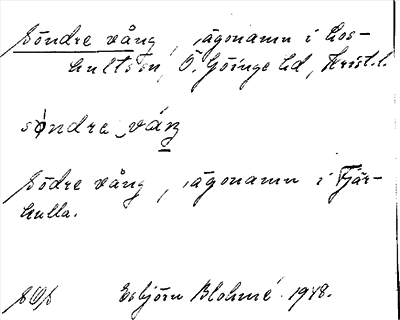 Söndre vång, ägonamn i Los-
hults sn, Ö. Göinge hd, Krist. l.
söndre váŋ
Södre vång, ägonamn i Fjär-
hulla.
SOS Esbjörn Blohmé 1948.